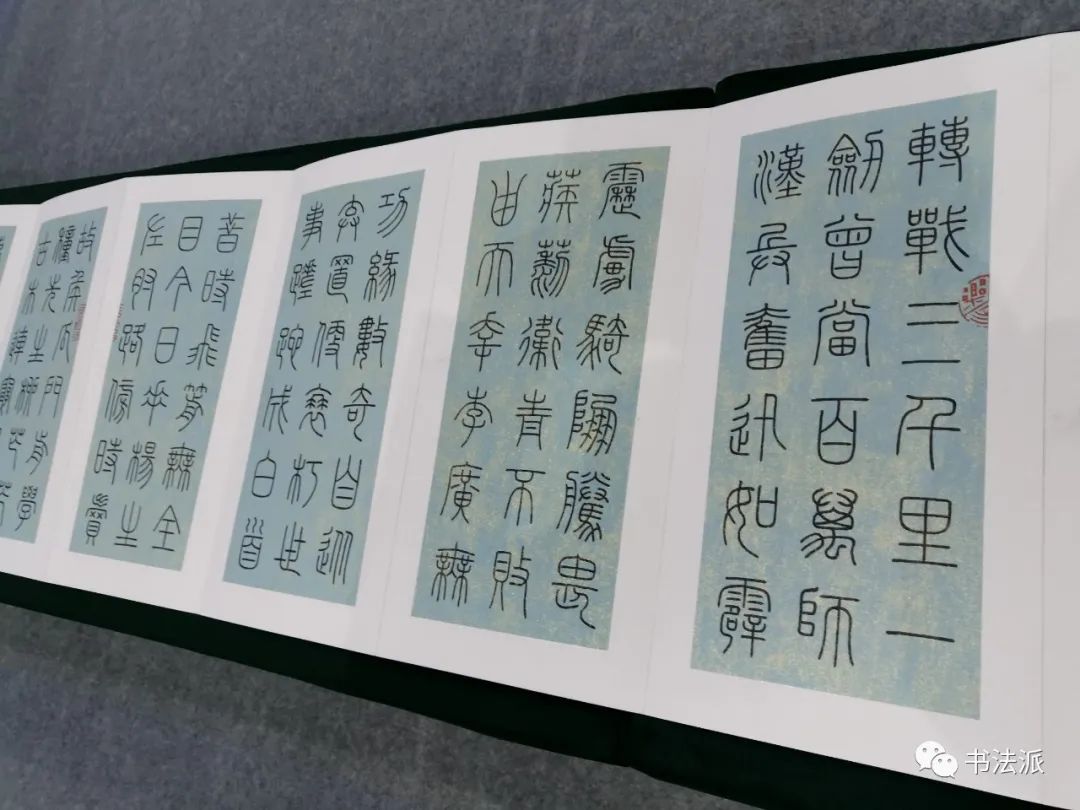 轉戰三千里一
劒曾當百萬師
漢兵奮迅如霹
靂虜騎崩騰畏
蒺藜衛青不敗
由天幸李廣無
功緣數奇自從
棄置便衰朽世
事蹉跎成白首
昔時飛箭無全
目今日垂楊生
左肘路傍時賣
故侯瓜門前學
種先生柳
古木連窮
书法派